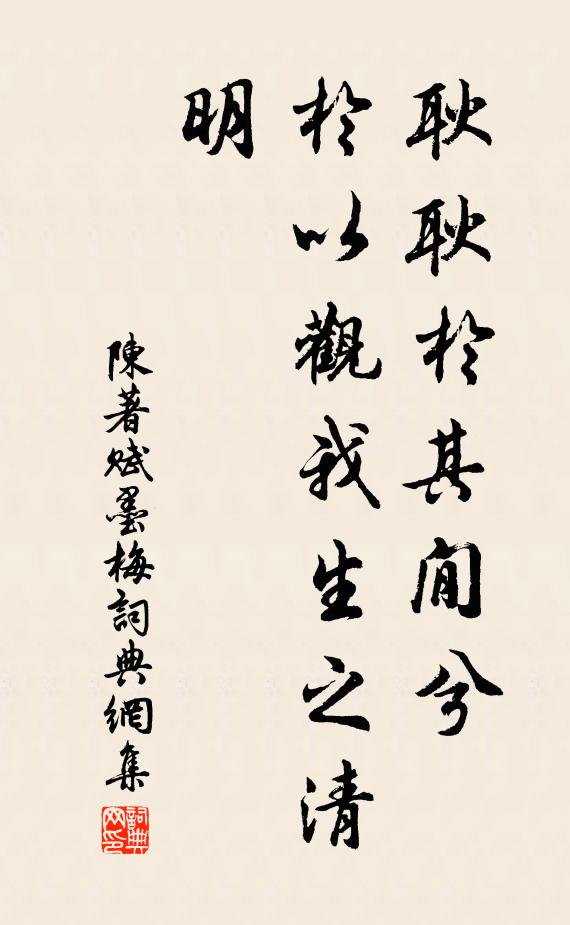 耿耿於其閒兮
於以觀我生之清
明
陳著賦墨梅詞典網集
詞典網印